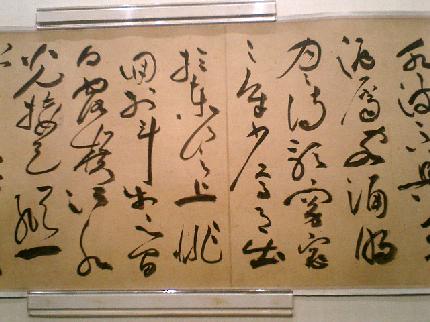 水波不興
酒屬客誦明
月之詩歌窈窕
之章少焉月出
於東山之上徘
徊於斗牛之間
白露橫江水
光接天縱一